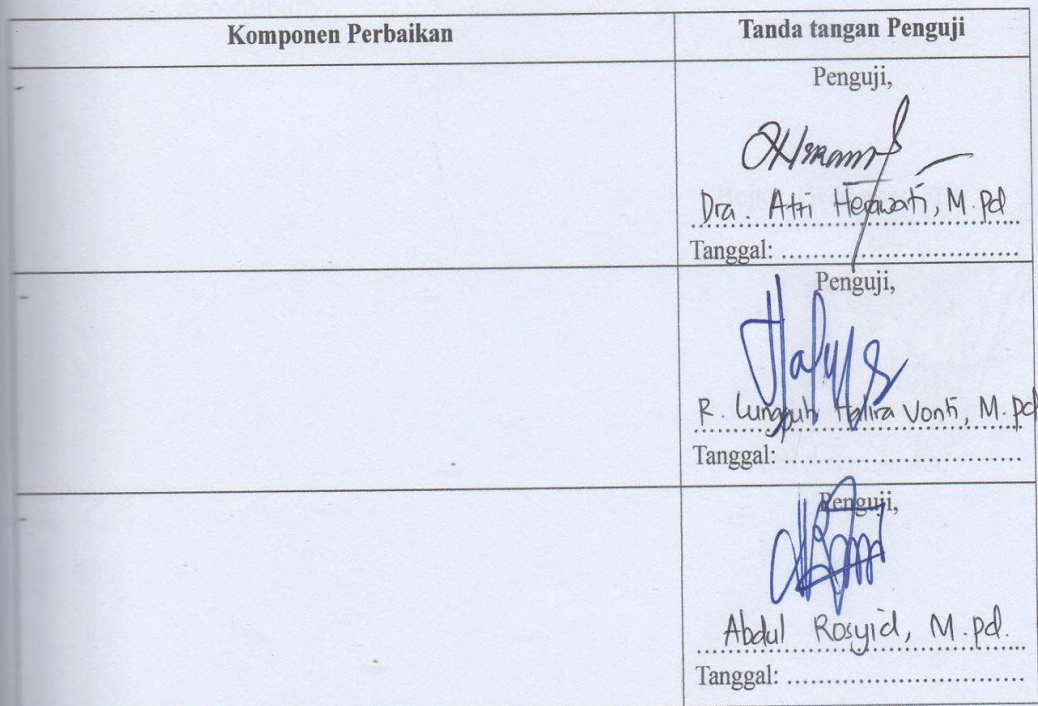 Komponen Perbaikan
Tanda tangan Penguji
-
Penguji,
Dra. Atri Herawati, M.Pd
Tanggal: ....................................
Penguji,
-
R. Lungguh Halira Vonti, M.pd
Tanggal: ....................................
Penguji,
-
Abdul Rosyid, M.pd.
Tanggal: ....................................